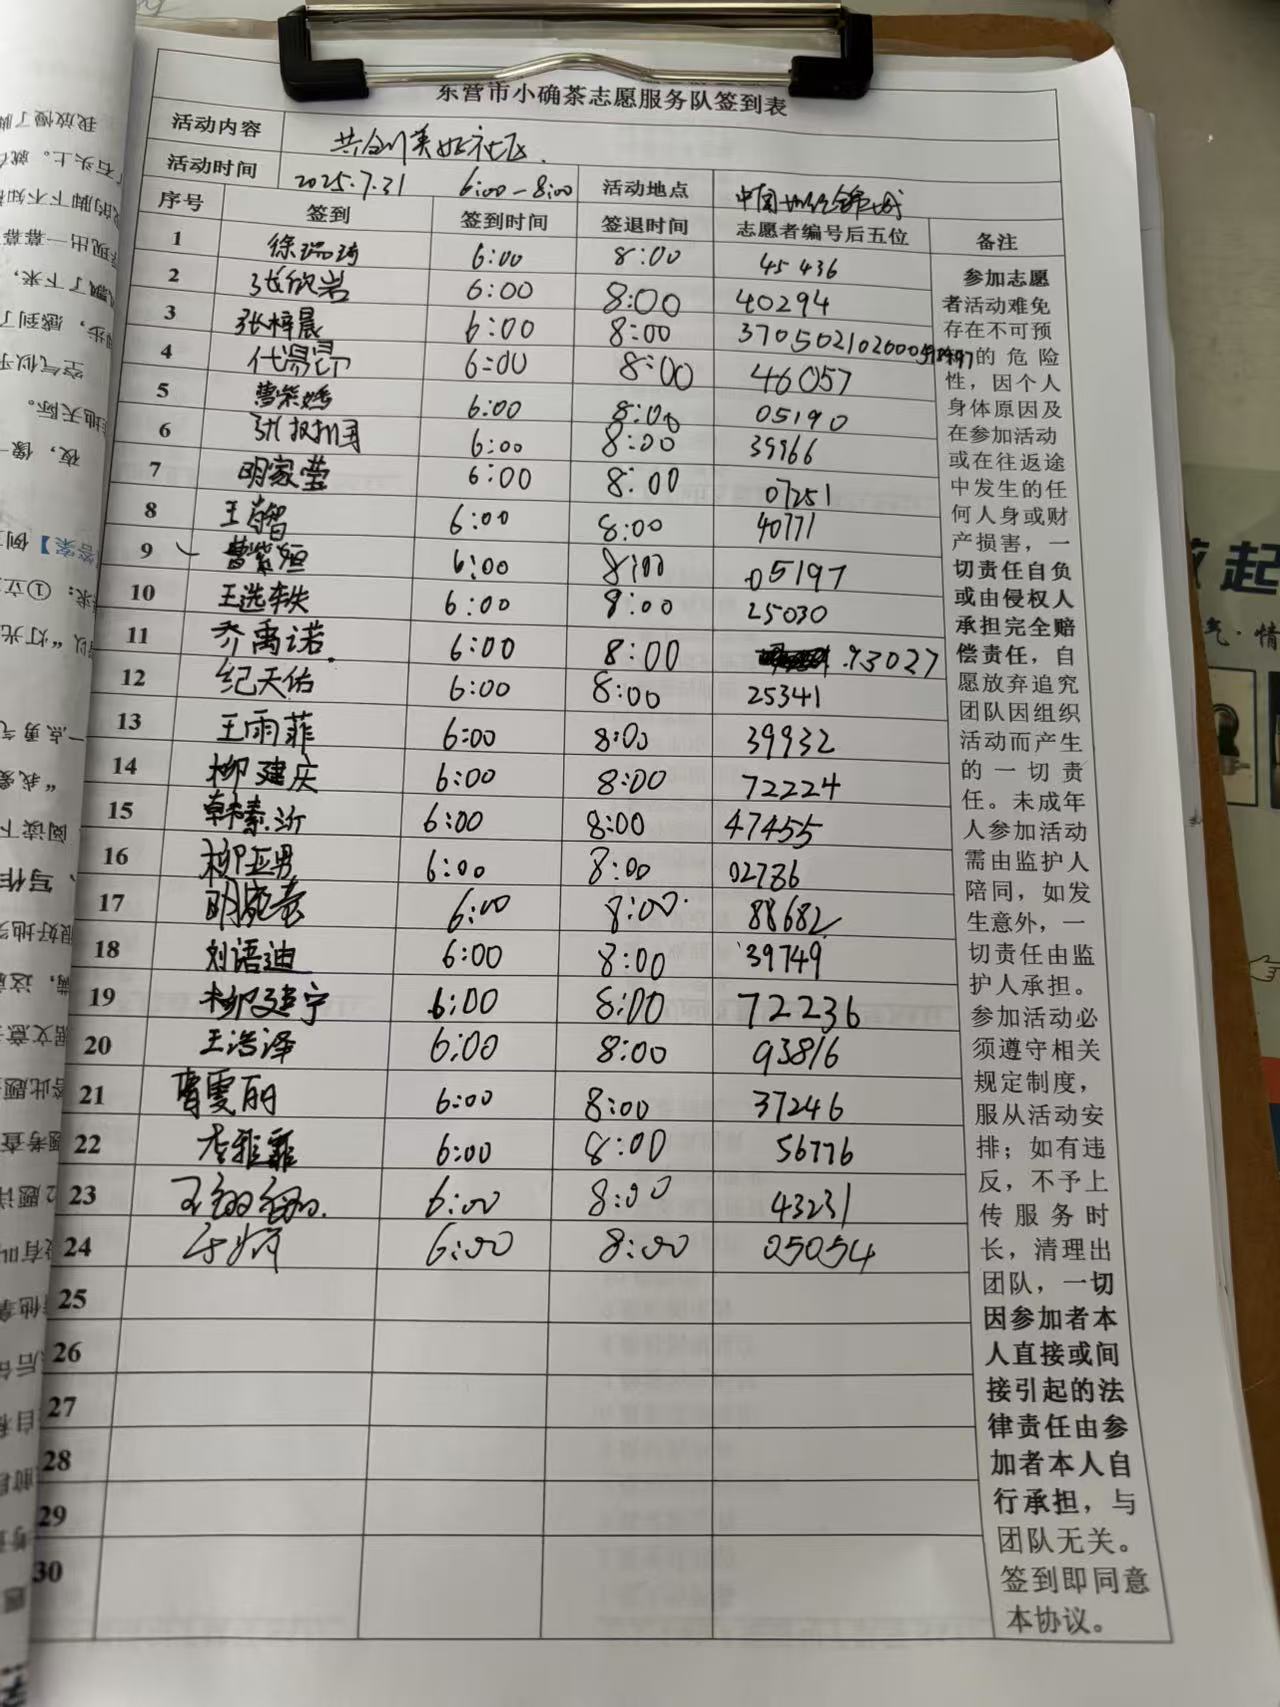 东营市小确茶志愿服务队签到表
活动内容 共创美好社区
活动时间 2025.7.31 6:00-8:00 活动地点 中国
序号 签到 签到时间 签退时间 志愿者编号后五位 备注
1 徐瑞琦 6:00 8:00 45436
2 张欣岩 6:00 8:00 40294
3 张梓晨 6:00 8:00
4 代 6:00 8:00 46057
5 曹紫嫣 6:00 8:00 05190
6 6:00 8:00 39966
7 明家莹 6:00 8:00 07251
8 王 智 6:00 8:00 40771
9 曹紫烜 6:00 8:00 05197
10 王选轶 6:00 8:00 25030
11 乔禹诺 6:00 8:00 93027
12 纪天佑 6:00 8:00 25341
13 王雨菲 6:00 8:00 39932
14 柳建庆 6:00 8:00 72224
15 韩素沂 6:00 8:00 47455
16 柳亚男 6:00 8:00 02786
17 明 6:00 8:00 88682
18 刘语迪 6:00 8:00 39749
19 柳建宁 6:00 8:00 72236
20 王浩泽 6:00 8:00 93816
21 曹雯丽 6:00 8:00 37246
22 李雅菲 6:00 8:00 56776
23 王 6:00 8:00 43231
24 6:00 8:00 05054
25
26
27
28
29
30
参加志愿
者活动难免
存在不可预
的危险
性，因个人
身体原因及
在参加活动
或在往返途
中发生的任
何人身或财
产损害，一
切责任自负
或由侵权人
承担完全赔
偿责任，自
愿放弃追究
团队因组织
活动而产生
的一切责
任。未成年
人参加活动
需由监护人
陪同，如发
生意外，一
切责任由监
护人承担。
参加活动必
须遵守相关
规定制度，
服从活动安
排；如有违
反，不予上
传服务时
长，清理出
团队，一切
因参加者本
人直接或间
接引起的法
律责任由参
加者本人自
行承担，与
团队无关。
签到即同意
本协议。
起
气·情